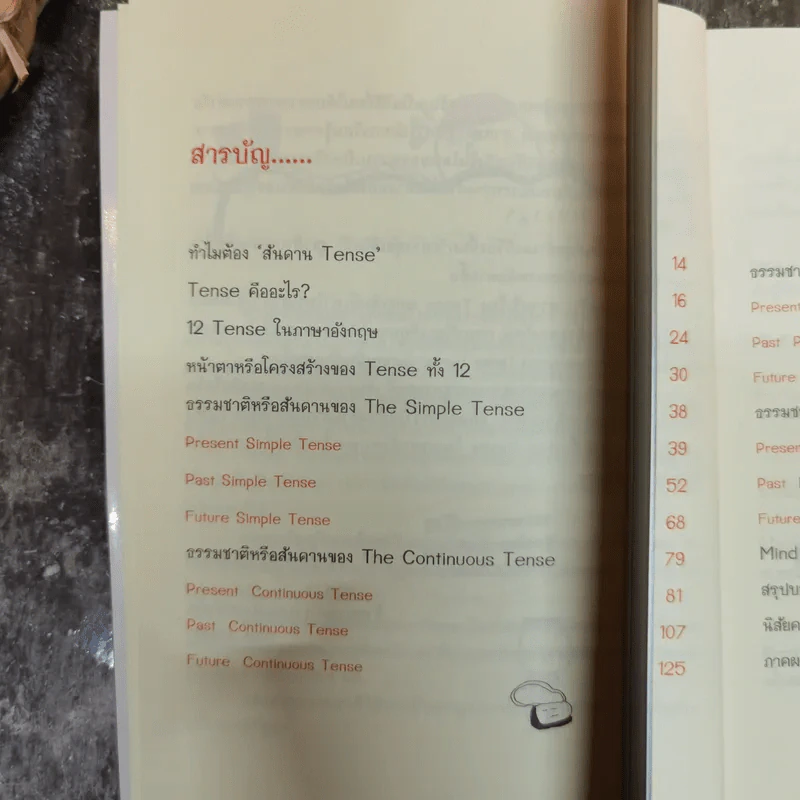 สารบัญ......
ทำไมต้อง ‘สันดาน Tense’ 14
Tense คืออะไร? 16
12 Tense ในภาษาอังกฤษ 24
หน้าตาหรือโครงสร้างของ Tense ทั้ง 12 30
ธรรมชาติหรือสันดานของ The Simple Tense 38
Present Simple Tense 39
Past Simple Tense 52
Future Simple Tense 68
ธรรมชาติหรือสันดานของ The Continuous Tense 79
Present Continuous Tense 81
Past Continuous Tense 107
Future Continuous Tense 125
ธรรมชา
Present
Past P
Future
ธรรมชา
Presen
Past
Future
Mind
สรุปบ
นิสัยค
ภาคผ